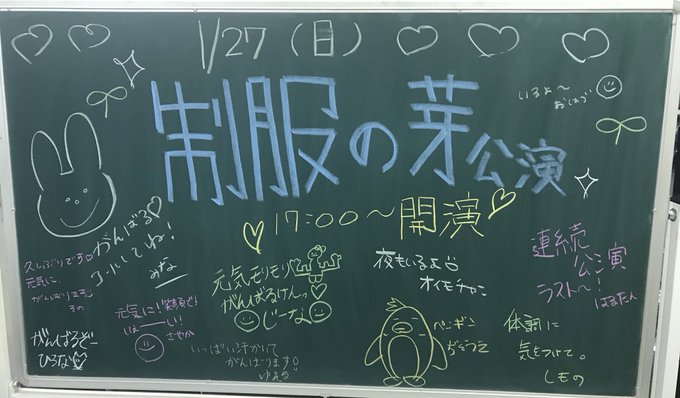 1/27(日)
制服の芽公演
17:00〜開演
いるよ〜
おしゃべ
がんばる♡
してね!
みな
久しぶりです
元気に、
がんばります
その
元気に!笑顔で!
さやか
がんばるぞー
ひろな♡
元気モリモリ
がんばるけんっ♡
じーな
いっぱい汗かいて
がんばります!
ゆえる
夜もいるよ
オイモチャン
ペンギン
連続
公演
ラスト〜!
はるたん
体調に
気をつけて。
しもの